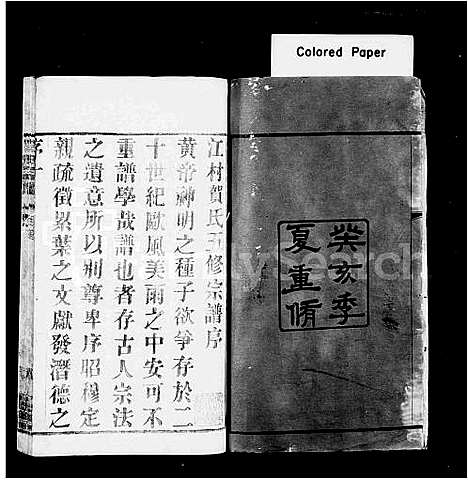 Colored Paper
癸亥季
夏重脩
江村賀氏五修宗譜序
黃帝神明之種子欲爭存於二
十世紀歐風美雨之中安可不
重譜學哉譜也者存古人宗法
之遺意所以別尊卑序昭穆定
親疏徵累葉之文獻發潛德之
序